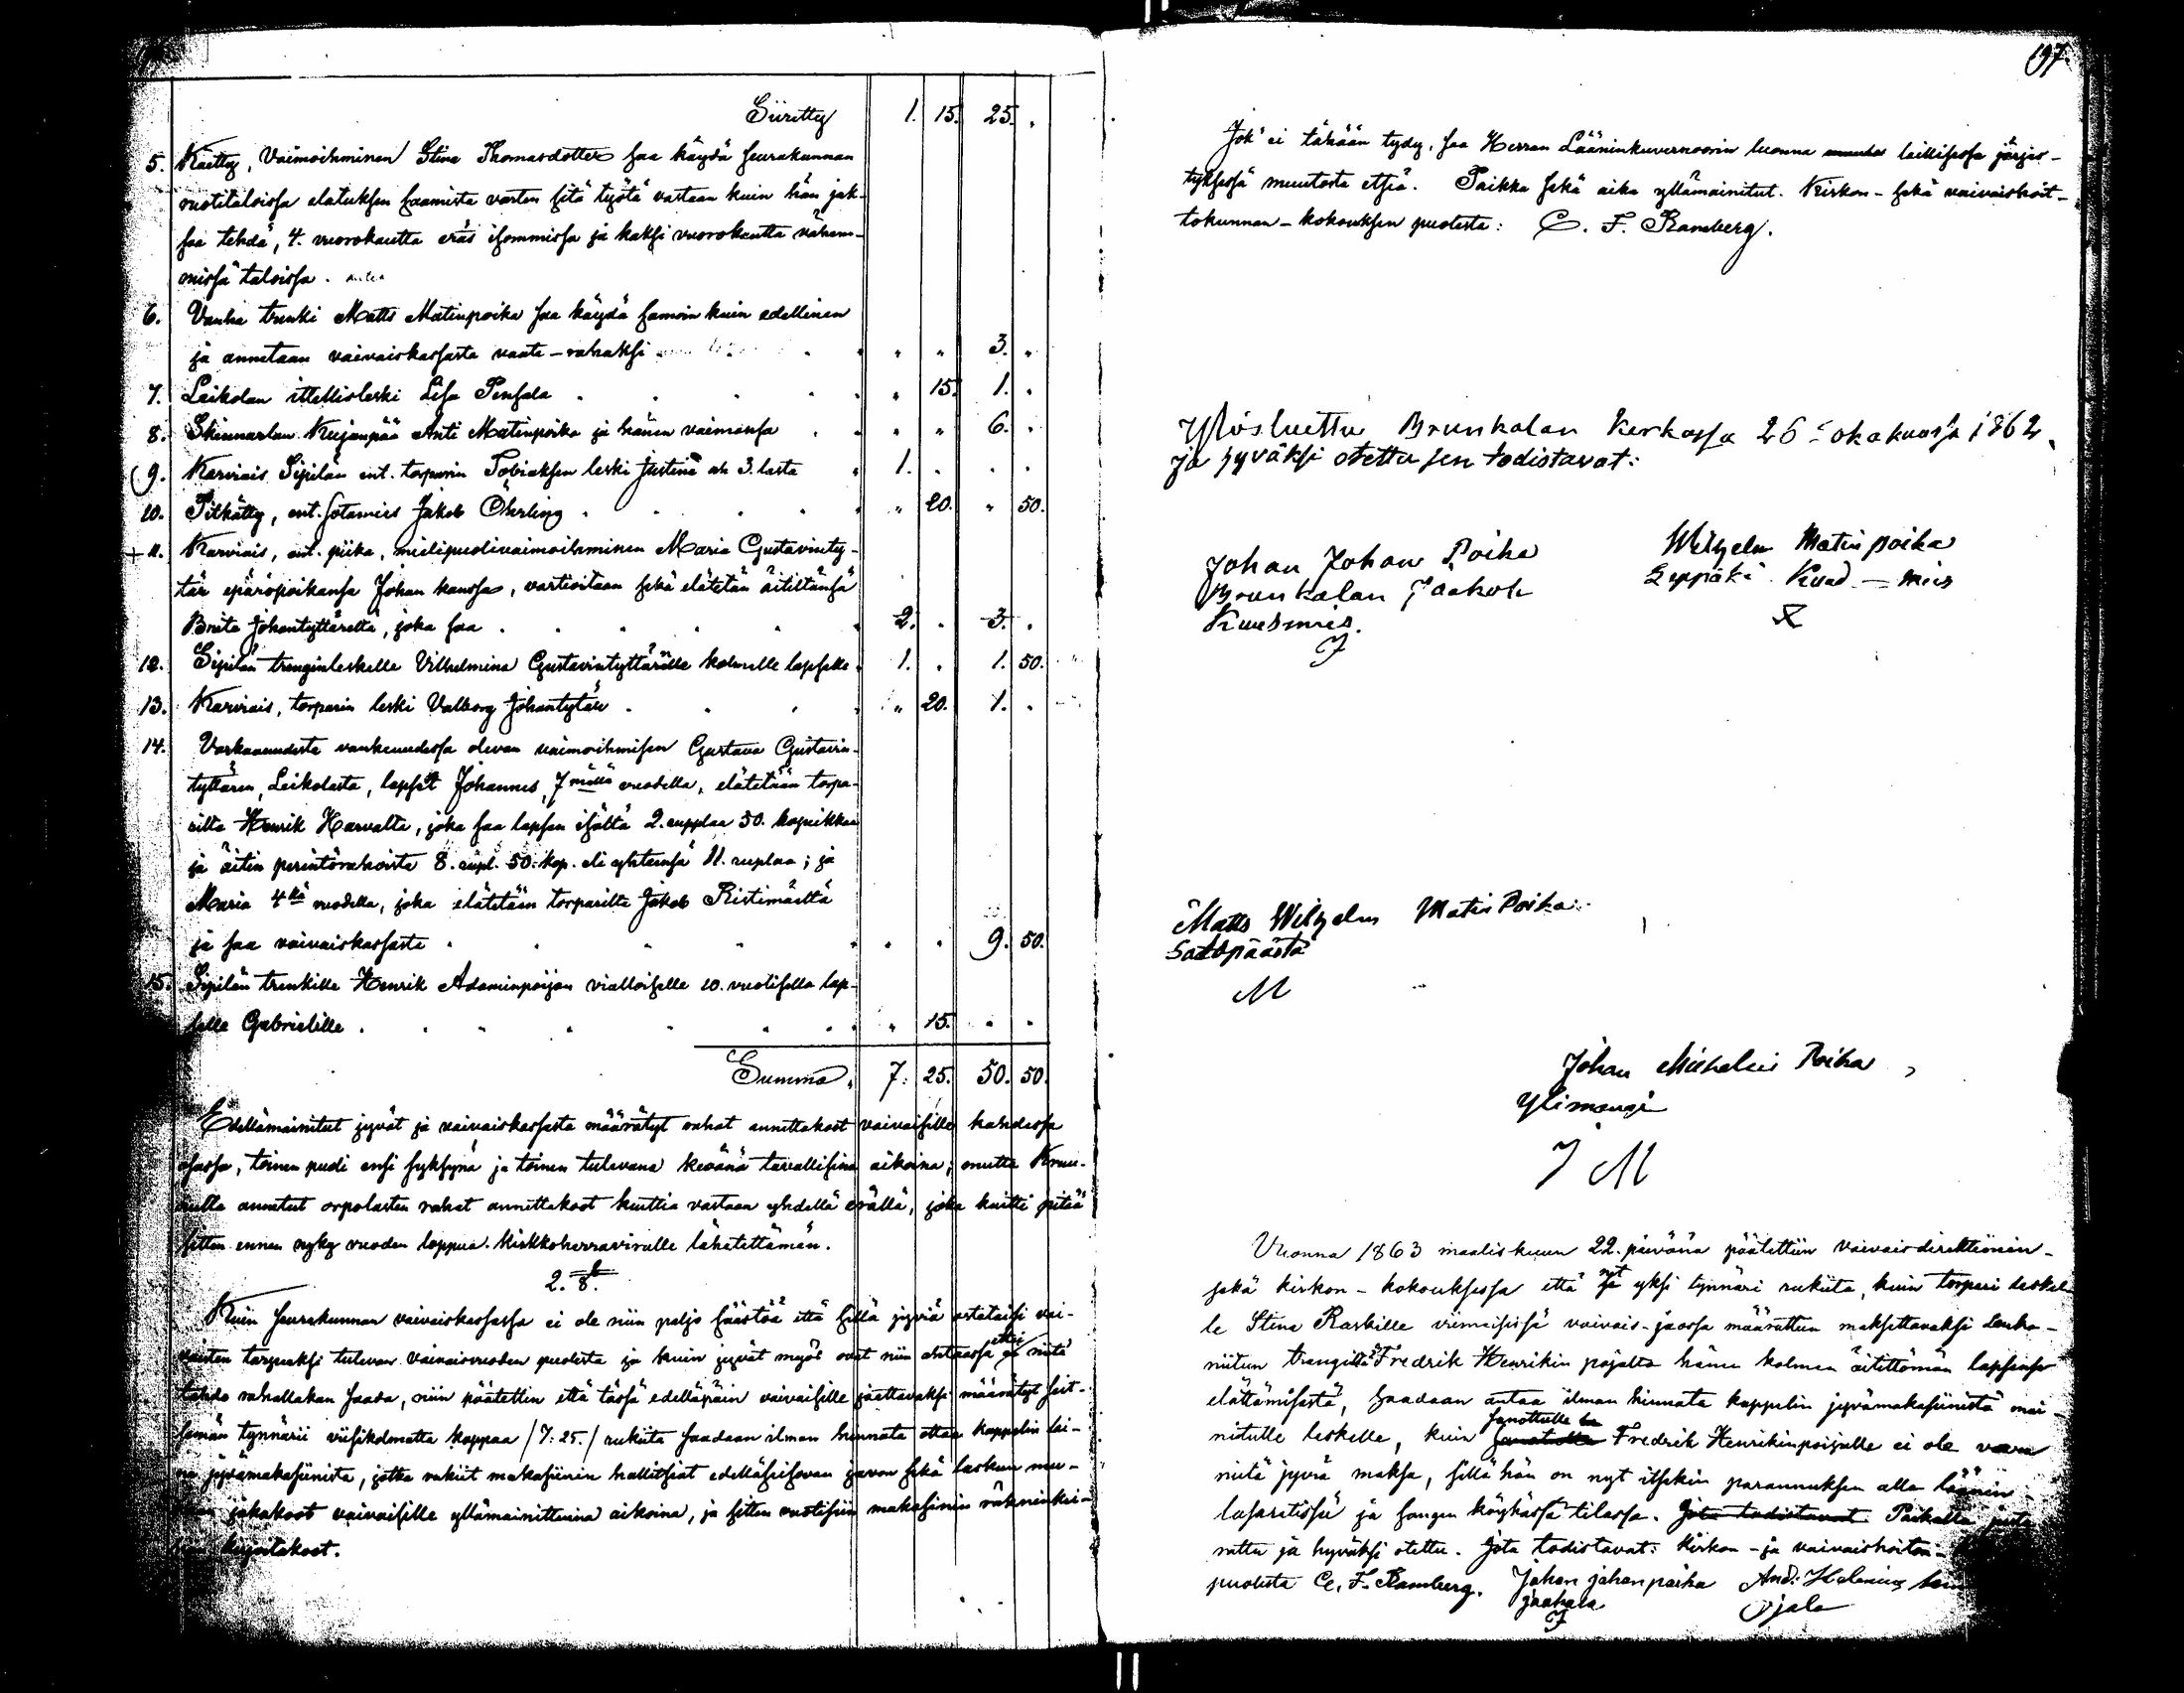 Siirretty 1. 15. 25. "
5. Kaetty, Vaimoihminen Stina Thomasdotter saa käydä seurakunnan
ruotitaloissa elatuksen saamista varten sitä työtä vastaan kuin hän jak-
saa tehdä, 4. vuorokautta eräs isommissa ja kaksi vuorokautta vähem-
missä taloissa.
6. Vanha trenki Matts Matinpoika saa käydä samoin kuin edellinen
ja annetaan vaivaiskassasta vaate-rahaksi . " " 3. "
7. Leikolan itsellisleski Lisa . " 15. 1. "
8. Skinnarlan Kujanpää Anti Matinpoika ja hänen vaimonsa . " " 6. "
9. Karviais Sipilän ent. torparin Tobiaksen leski Justina 3. lasta 1. " " "
10. Pitkätty, ent. sotamies Jakob Öhrling . " 20. " 50.
+ 11. Karviais, ent. piika, mielipuolivaimoihminen Maria Gustavinty-
tär epäröpoikansa Johan kanssa, vartioitaan sekä elätetän äitiltänsä
Brita Johantyttäreltä, joka saa . 2. " 3. "
12. Sipilän trenginleskelle Vilhelmina Gustavintyttärille kolmelle lapselle 1. " 1. 50.
13. Karviais, torparin leski Valborg Johantytär . " 20. 1. "
14. Varkaaudesta vankeudessa olevan vaimoihmisen Gustava Gustavin-
tyttären, Leikolasta, lapset Johannes, 7mällä vuodella, elätetään torpa-
rilta Henrik Harvalta, joka saa lapsen isältä 2. ruplaa 50. kopeikkaa
ja äitin perintörahoista 8. rupl. 50. kop. eli yhteensä 11. ruplaa; ja
Maria 4llä vuodella, joka elätetään torparilta Jakob Ristimäeltä
ja saa vaivaiskassasta . " " 9. 50.
15. Sipilän trenkille Henrik Adaminpoijan vialloiselle 10. vuotiselle lap-
selle Gabrielille . " 15. " "
Summa. 7. 25. 50. 50.
Edellämainitut jyvät ja vaivaiskassasta määrätyt rahat annettakoot vaivaisille kahdessa
osassa, toinen puoli ensi syksynä ja toinen tulevana kevänä tavallisina aikoina; mutta
annetut orpolasten rahat annettakoot kuittia vastaan yhdellä erällä, joka kuitti pitää
sitten ennen nyky vuoden loppua Kirkkoherraviralle lähetettämän.
2. §.
Kuin seurakunnan vaivaiskassassa ei ole niin paljo säästöä että sillä jyviä ostataisi vai-
vaisten tarpeeksi tulevan vaivaisvuoden puolesta ja kuin jyvät myös ovat niin ahtaassa ettei niitä
tahdo rahallakan saada, niin päätettin että tässä edelläpäin vaivaisille jaettavaksi määrätyt seit-
semän tynnärii viisikolmatta kappaa /7: 25./ rukiita saadaan ilman hinnata ottaa kappelin lai-
na jyvämakasiinista, jotka rukiit makasiinin hallitsiat edelläseisovan jaon sekä laskun mu-
kaan jakakoot vaivaisille yllämainittuina aikoina, ja sitten vuotisiin makasiinin räkninkei-
hin kirjoitakoot.
197.
Jok' ei tähään tydy, saa Herran Lääninkuvernoorin luonna laillisessa järjes-
tyksessä muutosta etsiä. Paikka sekä aika yllämainitut. Kirkon- sekä vaivaishoit-
tokunnan-kokouksen puolesta: C. F. Ramberg.
Ylösluettu Brunkalan Kirkossa 26 lokakuussa 1862
ja hyväksi otettu sen todistavat:
Johan Johan Poika
Brunkalan Jaakola
Kuudsmies.
J
Wilhelm Matin poika
Leppäki Kuud-mies
Matts Wilhelm Matin Poika
Satopäästä
M
Johan Michelin Poika
Ylimänyä
J M
Vuonna 1863 maaliskuun 22. päivänä päätettiin vaivaisdirektionin-
sekä kirkon-kokouksessa että ne yksi tynnäri rukiita, kuin torpari leskel-
le Stina Raskille viimeisissä vaivais-jaossa määrättiin maksettavaksi Louko-
niitun trengiltä Fredrik Henrikin pojalta hänen kolmen äitittömän lapsensa
elättämisestä, saadaan antaa ilman hinnata kappelin jyvämakasiinista mai-
nitulle leskelle, kuin sanottulle Fredrik Henrikinpoijalle ei ole vara
niitä jyviä maksa, sillä hän on nyt itsekin parannuksen alla läänin
lasaretissä ja sangen köyhässä tilassa. Jota todistavat Paikalla juste-
rattu ja hyväksi otettu. Jota todistavat: Kirkon-ja vaivaishoiton-
puolesta C. F. Ramberg. Johan johanpoika And: Helenius
jaakola Ojala
J